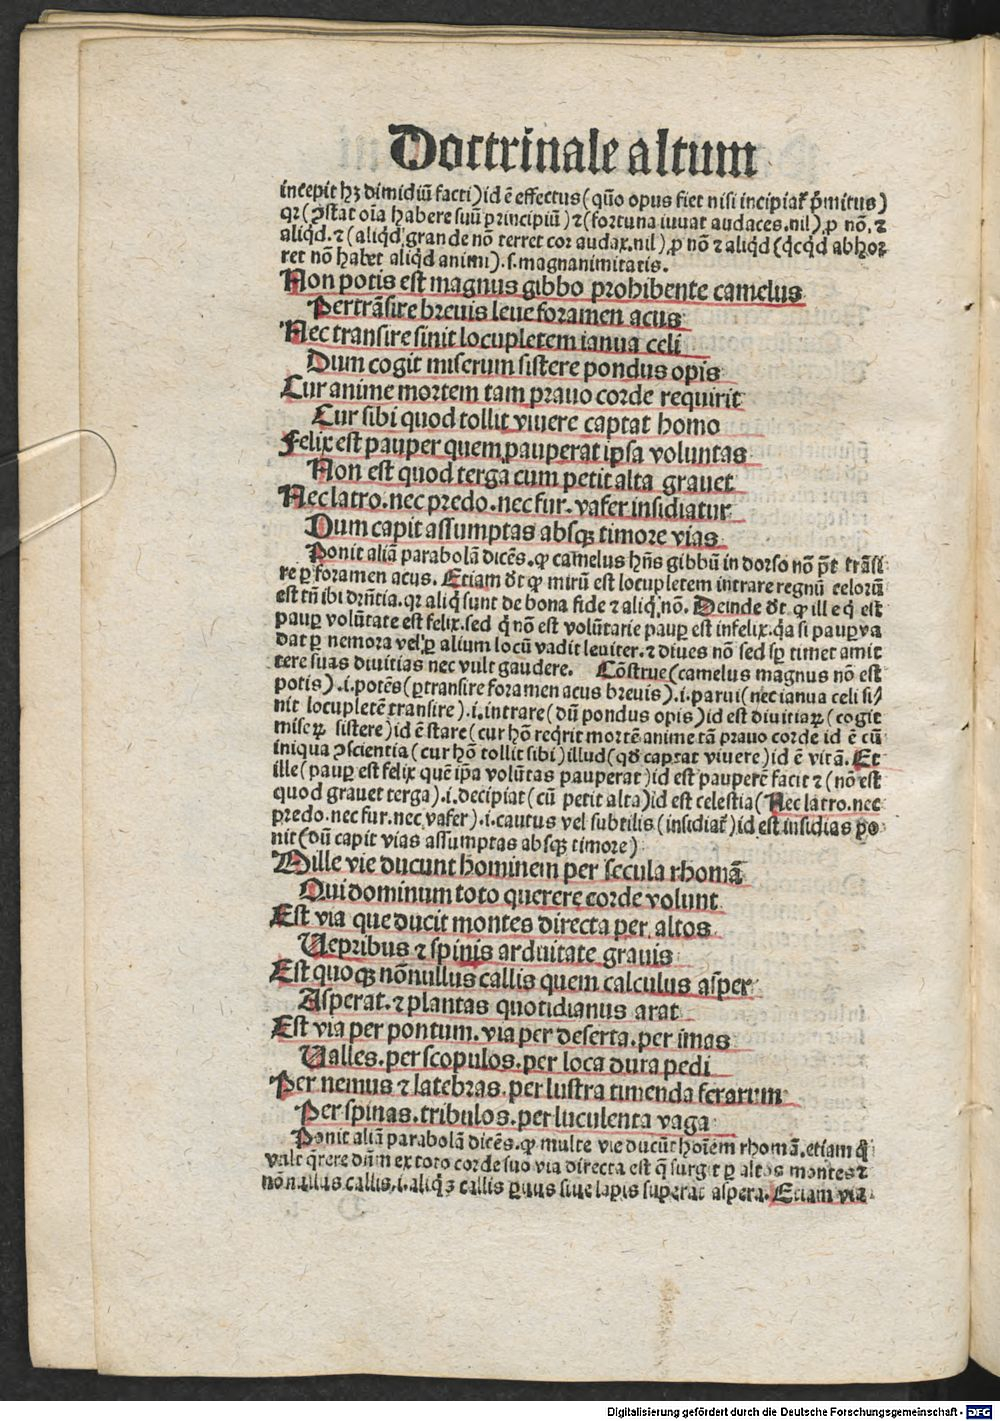 Doctrinale altum
incepit hꝫ dimidiū facti) id ē effectus (quō opus fiet nisi incipiat᷑ p̄mitus)
qꝛ (ꝯstat oīa habere suū principiū) ⁊ (fortuna iuuat audaces.nil) ꝓ nō. ⁊
aliqd. ⁊ (aliqd grande nō terret cor audax.nil) ꝓ nō ⁊ aliqd (qcqd abhor
ret nō habet aliqd animi). s. magnanimitatis.
Non potis est magnus gibbo prohibente camelus
Pertrāsire breuis leue foramen acus
Nec transire sinit locupletem ianua celi
Dum cogit miserum sistere pondus opis
Cur anime mortem tam prauo corde requirit
Cur sibi quod tollit viuere captat homo
Felix est pauper quem pauperat ipsa voluntas
Non est quod terga cum petit alta grauet
Nec latro.nec predo.nec fur.vafer insidiatur
Dum capit assumptas absqꝫ timore vias
Ponit aliā parabolā dicēs. ꝙ camelus hn̄s gibbū in dorso nō p̄t trāsi
re ꝑ foramen acus. Etiam dt ꝙ mirū est locupletem intrare regnū celorū
est tn̄ ibi drn̄tia. qꝛ aliq sunt de bona fide ⁊ aliq nō. Deinde dt ꝙ ille q est
paup volūtate est felix.sed q nō est volūtarie paup est infelix.qa si paup va
dat ꝑ nemora vel ꝑ alium locū vadit leuiter. ⁊ diues nō sed sp timet amit
tere suas diuitias nec vult gaudere. Cōstrue (camelus magnus nō est
potis).i.potēs (ꝑtransire foramen acus breuis).i.parui (nec ianua celi si/
nit locupletē transire).i.intrare (dū pondus opis) id est diuitiaꝝ (cogit
miseꝝ sistere) id ē stare (cur hō reqrit mortē anime tā prauo corde id ē cū
iniqua ꝯscientia (cur hō tollit sibi) illud (qd captat viuere) id ē vitā. Et
ille (paup est felix quē ip̄a volūtas pauperat) id est pauperē facit ⁊ (nō est
quod grauet terga).i.decipiat (cū petit alta) id est celestia (Nec latro.nec
predo.nec fur.nec vafer).i.cautus vel subtilis (insidiat᷑) id est insidias po
nit (dū capit vias assumptas absqꝫ timore)
Mille vie ducunt hominem per secula rhomā
Qui dominum toto querere corde volunt
Est via que ducit montes directa per altos
Vepribus ⁊ spinis arduitate grauis
Est quoqꝫ nōnullus callis quem calculus asper
Asperat. ⁊ plantas quotidianus arat
Est via per pontum. via per deserta.per imas
Valles.per scopulos.per loca dura pedi
Per nemus ⁊ latebras.per lustra timenda ferarum
Per spinas.tribulos.per luculenta vaga
Ponit aliā parabolā dicēs. ꝙ multe vie ducūt hoīem rhomā.etiam q
vult qrere dn̄m ex toto corde suo via directa est q̄ surgit ꝑ altos montes ⁊
nōnullus callis.i.aliqs callis siue lapis superat aspera. Etiam via
Digitalisierung gefördert durch die Deutsche Forschungsgemeinschaft - DFG